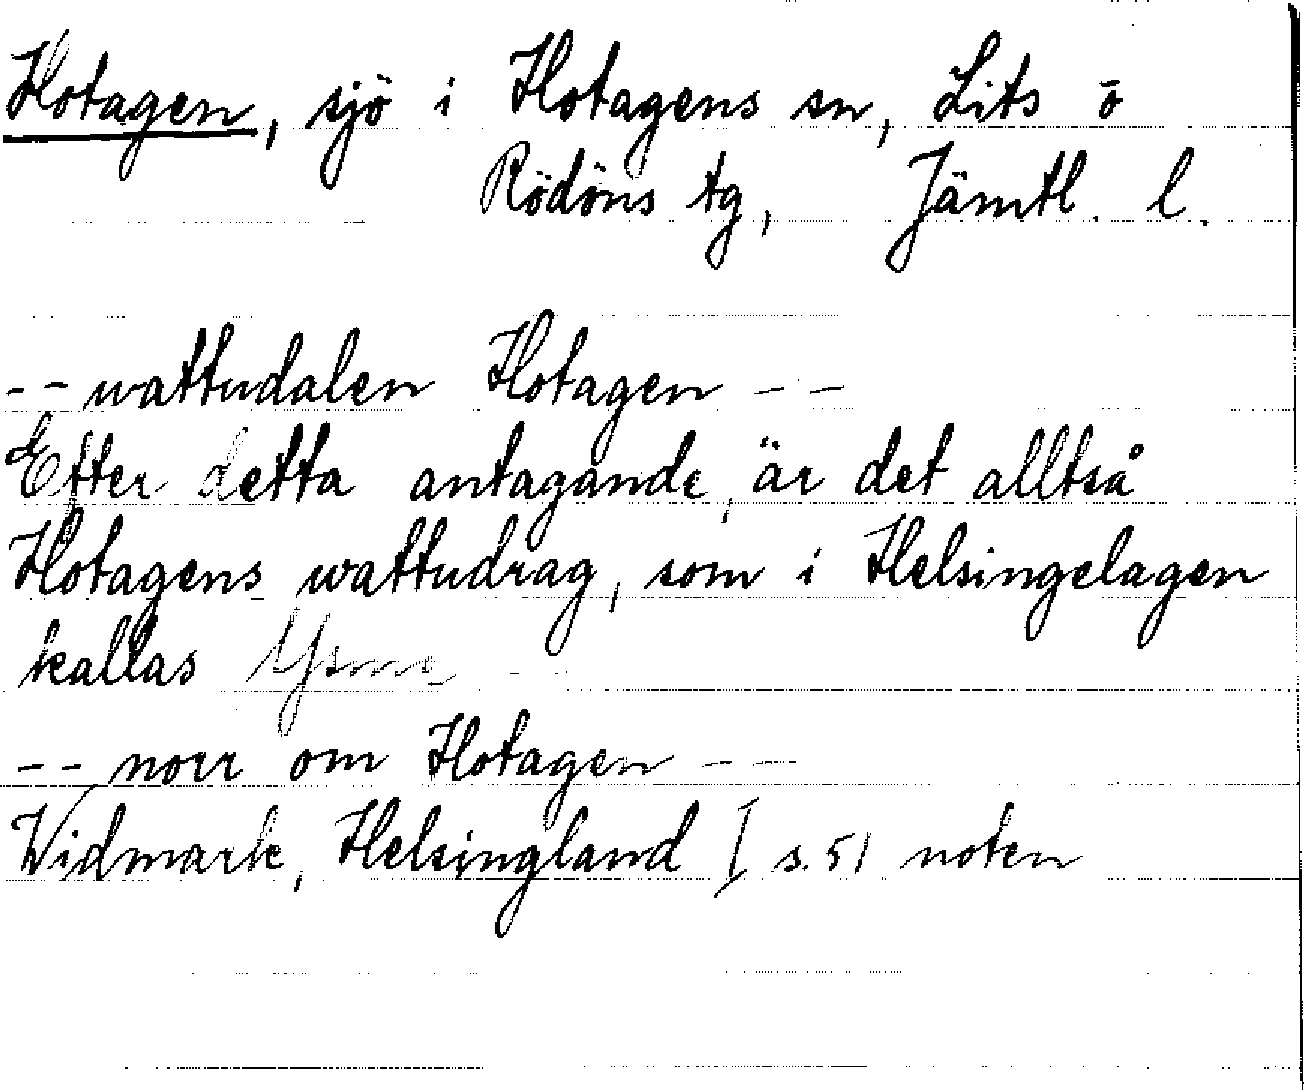 Hotagen, sjö i Hotagens sn, Lits o
Rödöns tg, Jämtl. l.
-- wattudalen Hotagen --
Efter detta antagande, är det alltså
Hotagens wattudrag, som i Helsingelagen
kallas
-- norr om Hotagen --
Widmark, Helsingland I s. 51 noten